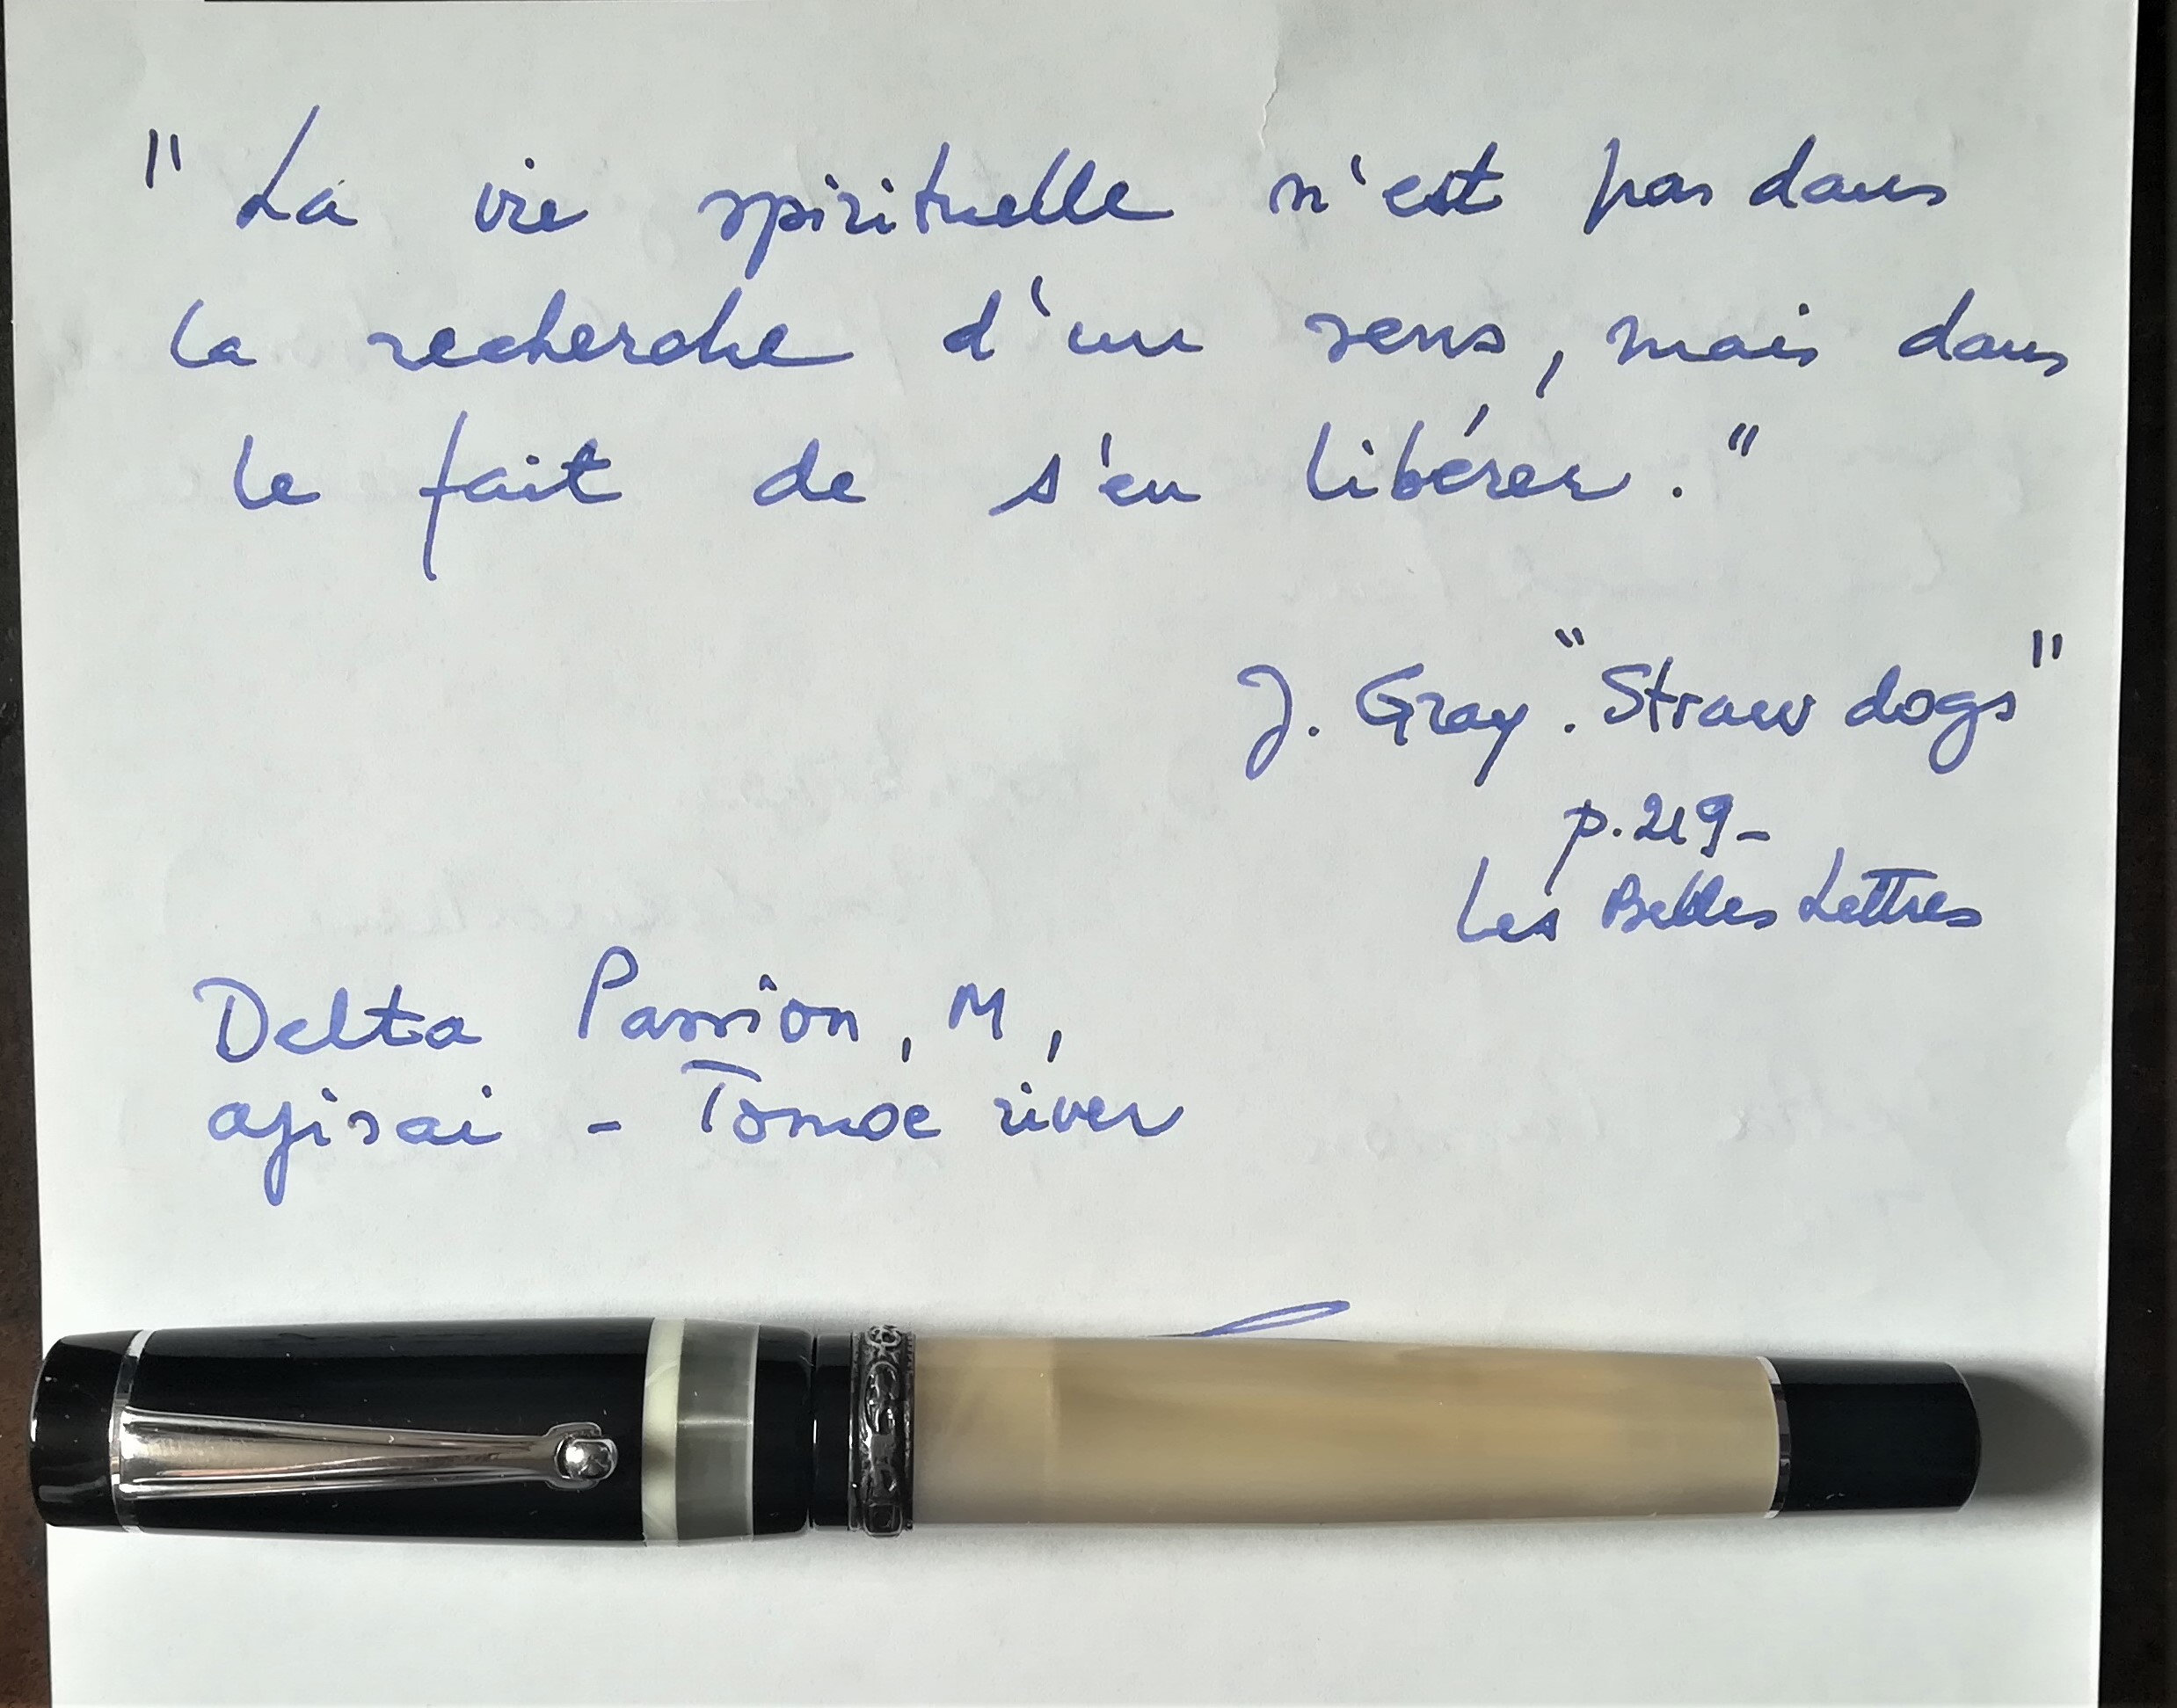 "La vie spirituelle n'est pas dans
la recherche d'un sens, mais dans
le fait de s'en libérer."
J. Gray. "Straw dogs"
p. 219-
Les Belles Lettres
Delta Passion, M,
ajisai - Tomoe river